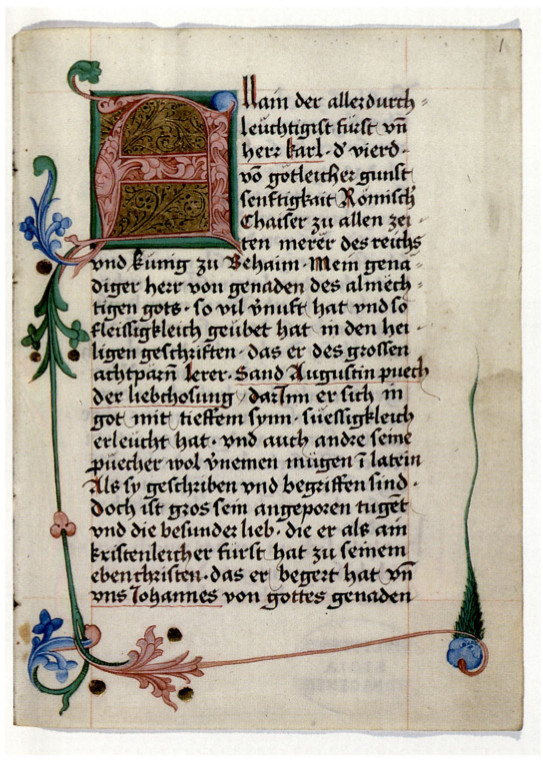 1
Nain der allerdurch=
leuchtigist fürst vn̄
herr karl · d' vierd ·
vō gotleicher gunst
senftigkait Römisch
Chaiser zu allen zei ·
ten merer des reichs
vnd künig zu Behaim · Mein gena ·
diger herr von genaden des almech ·
tigen gots · so vil v̄nuft hat vnd so
fleissigkleich geübet hat in den hei ·
ligen geschriften · das er des grossen
achtparn̄ lerer · Sand Augustin puech
der liebchosung · darInn er sich in
got mit tieffem synn · süessigkleich
erleucht hat · vnd auch andre seine
püecher wol v̄nemen mügen ī latein
Als sy geschriben vnd begriffen sind ·
doch ist gros sein angeporen tugēt
vnd die besunder lieb · die er als ain
kristenleicher fürst hat zu seinem
ebenchristen · das er begert hat vn̄
vns Johannes von gottes genaden